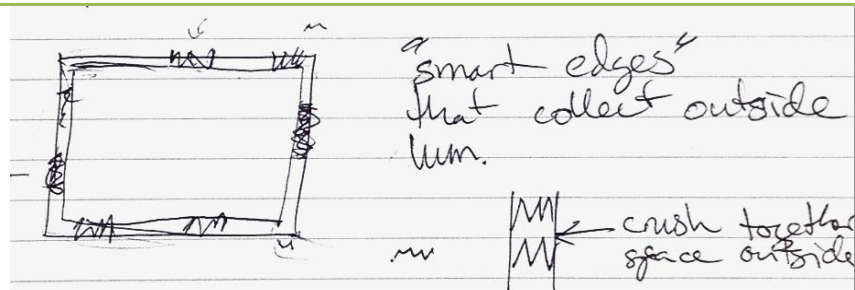 "smart edges"
that collect outside
crush together
space outside